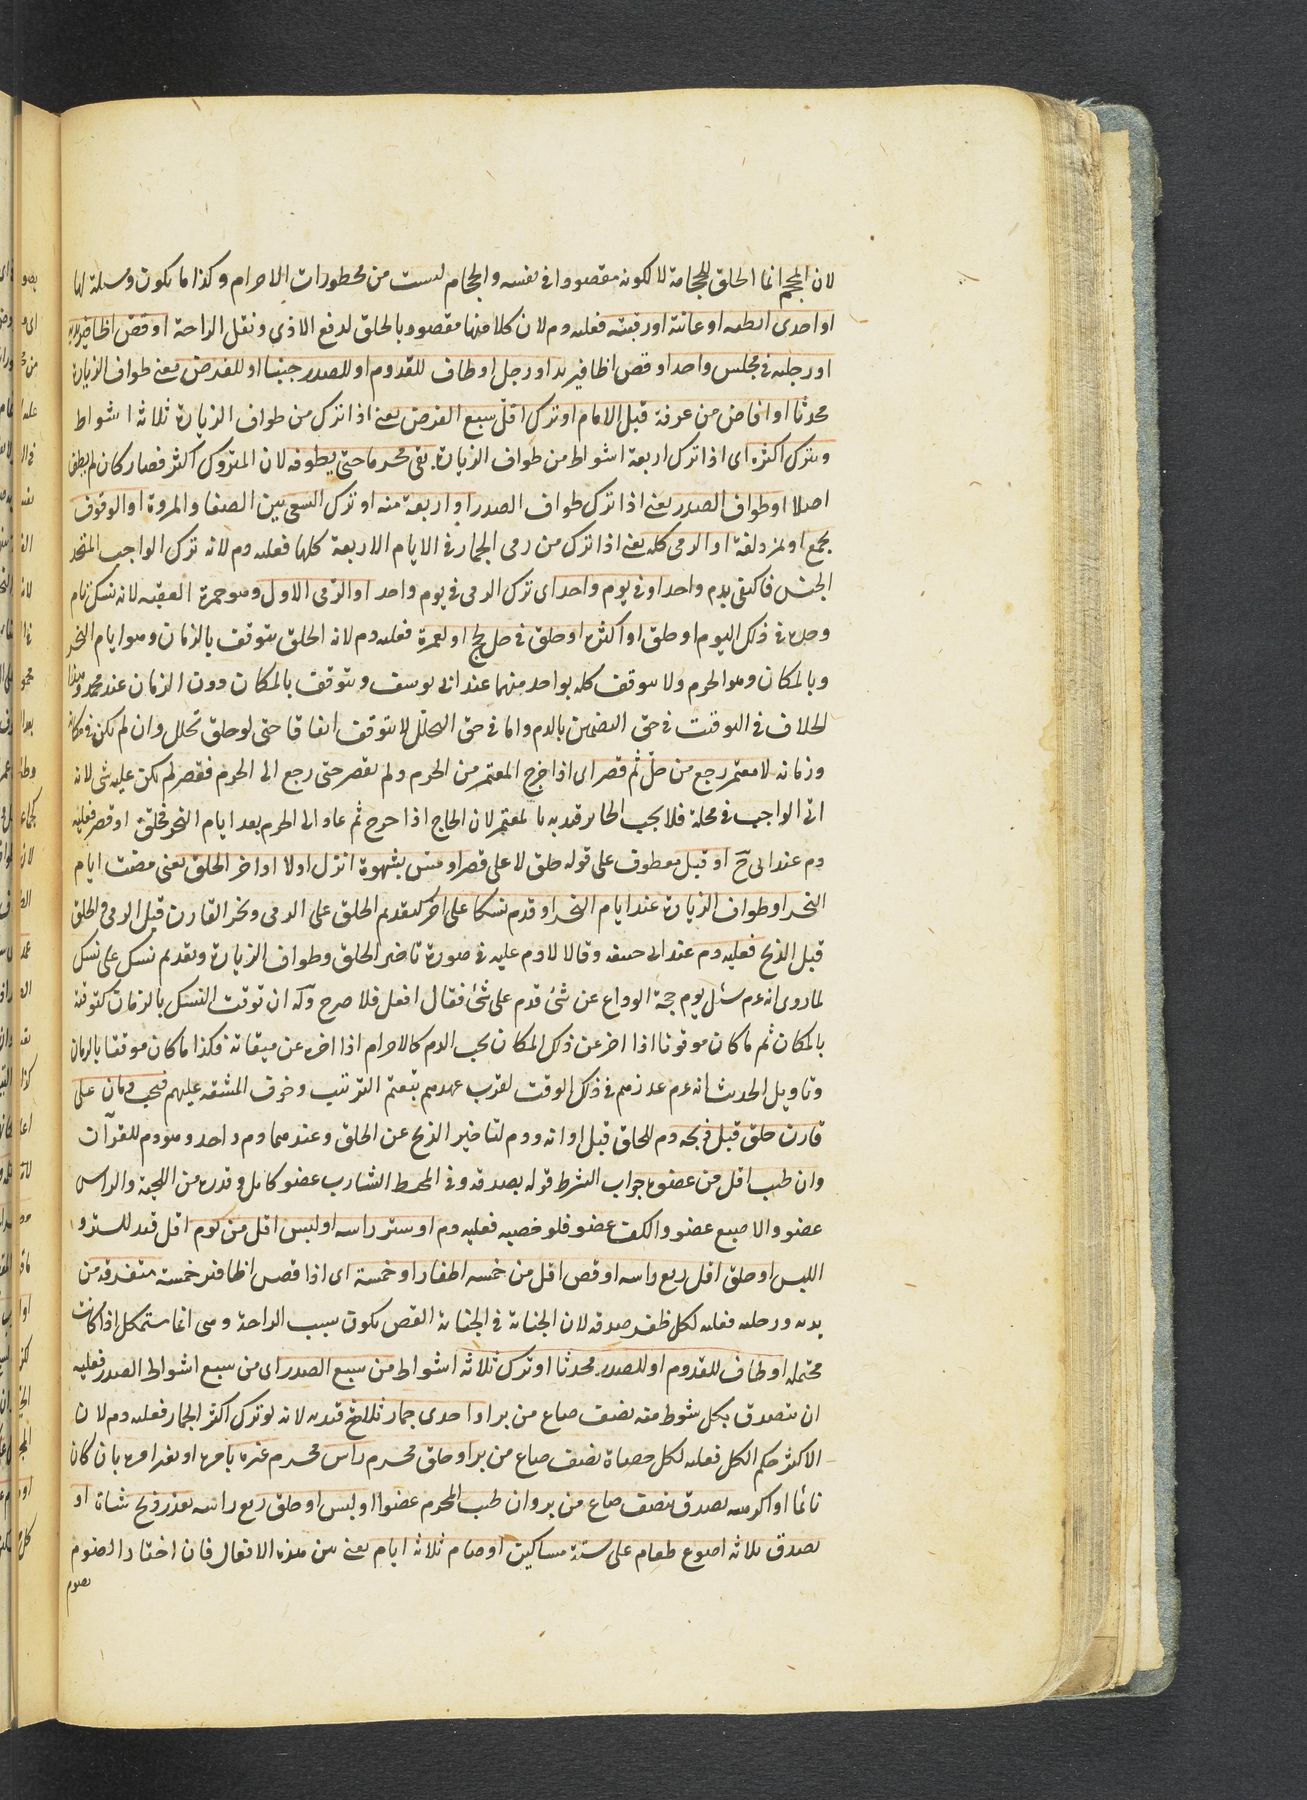 لان المحجم انما الحلق للحجامة لا لكونه مقصودا فى نفسه والحجام ليست من محظورات الاحرام وكذا ما يكون وسيلة لها
او احدى ابطيه او عانته او رقبته فعليه دم لان كلا منها مقصود بالحلق لدفع الاذى ونقل الراحة او قص اظافير يديه
او رجليه فى مجلس واحد او قص اظافير يد او رجل او طاف للقدوم او للصدر جنبا او للفرض يعنى طواف الزيارة
محدثا او افاض من عرفة قبل الامام او ترك اقل سبع الفرض يعنى اذا ترك من طواف الزيارة ثلاثة اشواط
وبترك اكثره اى اذا ترك اربعة اشواط من طواف الزيارة بقى محرما حتى يطوفه لان المتروك اكثر فصار كان لم يطف
اصلا او طواف الصدر يعنى اذا ترك طواف الصدر او اربعة منه او ترك السعى بين الصفا والمروة او الوقوف
بجمع او لمزدلفة او الرمى كله يعنى اذا ترك من رمى الجمار فى الايام الاربعة كلها فعليه دم لانه ترك الواجب المتحد
الجنس فاكتفى بدم واحد او فى يوم واحد اى ترك الرمى فى يوم واحد او الرمى الاول وهو جمرة العقبه لانه نسك تام
وحده فى ذلك اليوم او حلق او اكثره او حلق فى حل لحج او لعمرة فعليه دم لانه الحلق يتوقف بالزمان وهو ايام النحر
وبالمكان وهو الحرم ولا يتوقف كله بواحد منهما عند ابى يوسف ويتوقف بالمكان دون الزمان عند محمد وهذا
الخلاف فى التوقيت فى حق التضمين بالدم واما فى حق التحلل لا يتوقف اتفاقا حتى لو حلق تحلل وان لم يكن فى مكانه
وزمانه لا معتمر رجع من حل ثم قصر اى اذا خرج المعتمر من الحرم ولم يقصر حتى رجع الى الحرم فقصر لم يكن عليه شى لانه
اتى الواجب فى محله فلا يجب الجابر قيد به بالمعتمر لان الحاج اذا خرج ثم عاد الى الحرم بعد ايام النحر فحلق او قصر فعليه
دم عند ابى ح او قبل معطوف على قوله حلق لا على قصر او مس بشهوة انزل او لا او اخر الحلق يعنى مضت ايام
النحر او طواف الزيارة عند ايام النحر او قدم نسكا على اخر كتقديم الحلق على الرمى ونحر القارن قبل الرمى والحلق
قبل الذبح فعليه دم عند ابى حنيفه وقالا لا دم عليه فى صورة تاخير الحلق وطواف الزيارة وتقديم نسك على نسك
لما روى انه عم سئل يوم حجة الوداع عن شئ قدم على شئ فقال افعل فلا حرج وله ان توقت النسك بالزمان كتوقته
بالمكان ثم ما كان موقوتا اذا اخر عن ذلك المكان يجب الدم كالاحرام اذا اخره عن ميقاته فكذا ما كان موقتا بالزمان
وتاويل الحديث انه عم عذرهم فى ذلك الوقت لقرب عهدهم بتعلم الترتيب وخوف المشقه عليهم فيجب دمان على
قارن حلق قبل ذبحه دم للحلق قبل اوانه ودم لتاخير الذبح عن الحلق وعندهما دم واحد وهو دم للقرآن
وان طيب اقل من عضو جواب الشرط قوله بصدقه وفى المحيط الشارب عضو كامل وقدره من اللحية والراس
عضو والاصبع عضو والكف عضو فلو خضبه فعليه دم او ستر راسه او لبس اقل من يوم اقل قيد للستر و
اللبس او حلق اقل ربع راسه او قص اقل من خمسه اظفار او خمسة اى اذا قص اظافير خمسة متفرقة من
يديه ورجليه فعليه لكل ظفر صدقه لان الجناية فى الجناية القص يكون بسبب الراحة وهى انما ستمكل اذا كانت
مجتمعة او طاف للقدوم او للصدر محدثا او ترك ثلاثه اشواط من سبع الصدر اى من سبع اشواط الصدر فعليه
ان يتصدق بكل شوط منه نصف صاع من بر او احدى جمار ثلاث قيد به لانه لو ترك اكثر الجمار فعليه دم لان
الاكثر حكم الكل فعليه لكل حصاة نصف صاع من بر او حلق محرم راس محرم غيره بامره او بغير امره بان كان
نائما او اكرهه تصدق بنصف صاع من بر وان طيب المحرم عضوا او لبس او حلق ربع راسه بعذر ذبح شاة او
تصدق ثلاثه اصوع طعام على ستة مساكين او صام ثلاثه ايام يعنى من هذه الافعال فان اختار الصوم
يصوم